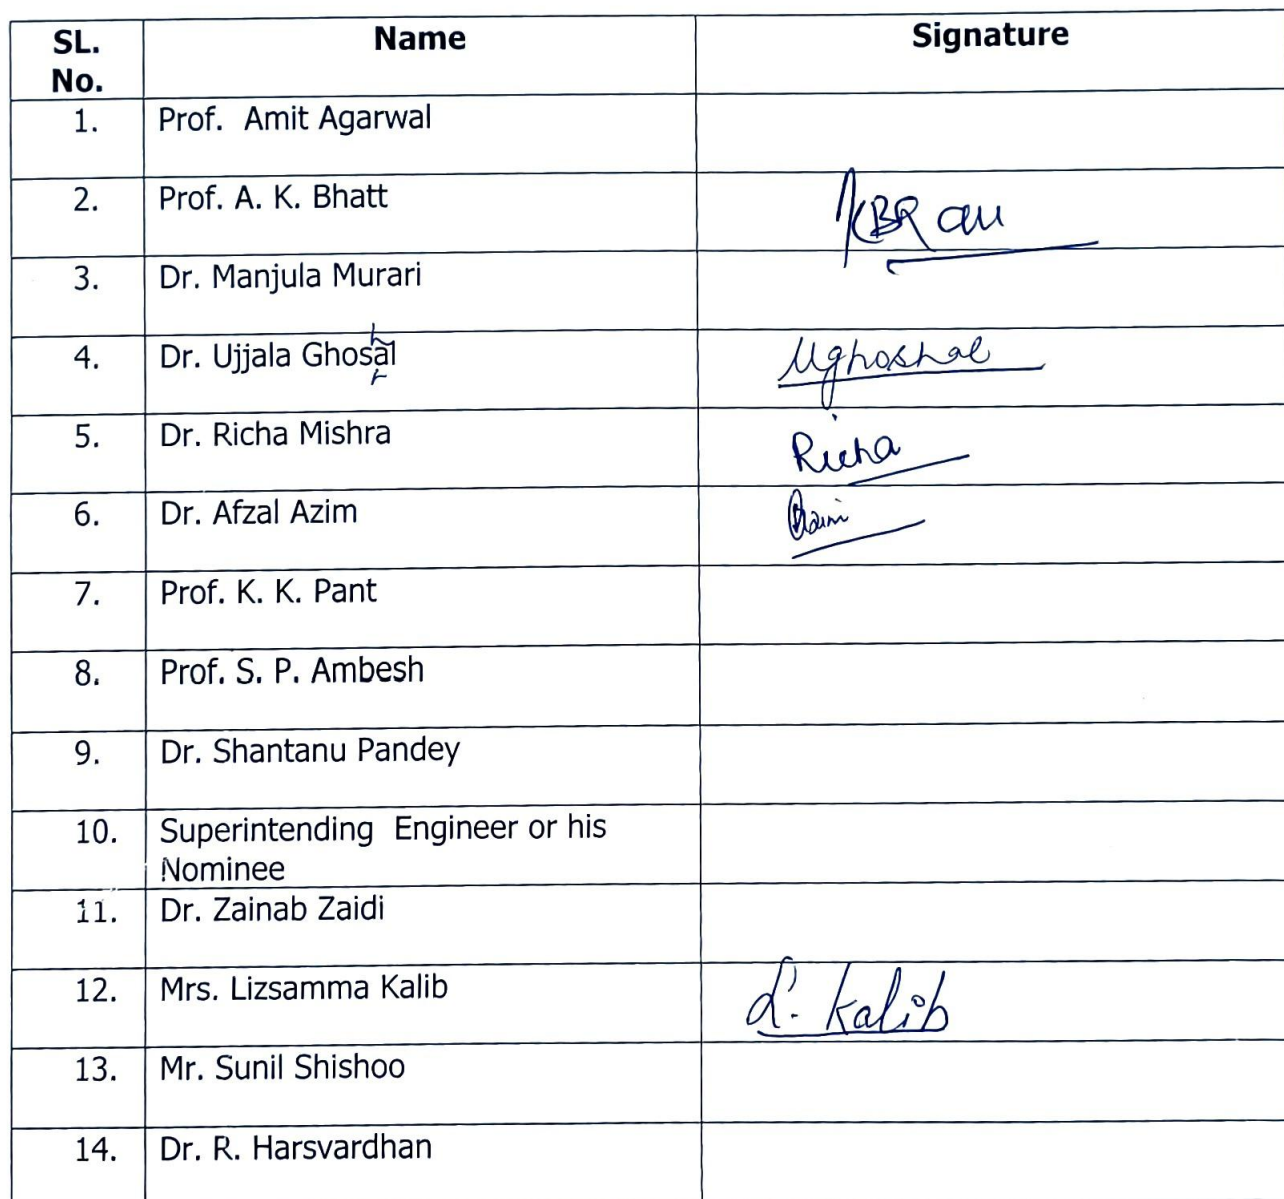 SL. No. Name Signature
1. Prof. Amit Agarwal
2. Prof. A. K. Bhatt
3. Dr. Manjula Murari
4. Dr. Ujjala Ghosal h Ughoshal
5. Dr. Richa Mishra Richa
6. Dr. Afzal Azim
7. Prof. K. K. Pant
8. Prof. S. P. Ambesh
9. Dr. Shantanu Pandey
10. Superintending Engineer or his
Nominee
11. Dr. Zainab Zaidi
12. Mrs. Lizsamma Kalib L. Kalib
13. Mr. Sunil Shishoo
14. Dr. R. Harsvardhan